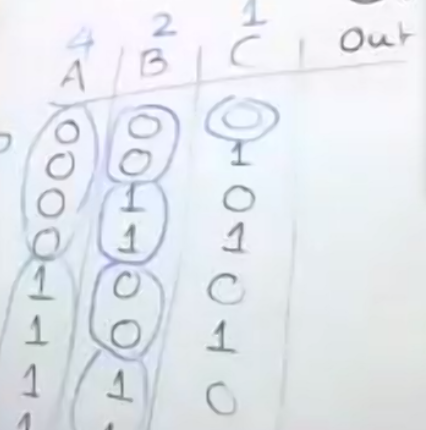 4 2 1
A B C Out
0 0 0
0 0 1
0 1 0
0 1 1
1 0 0
1 0 1
1 1 0